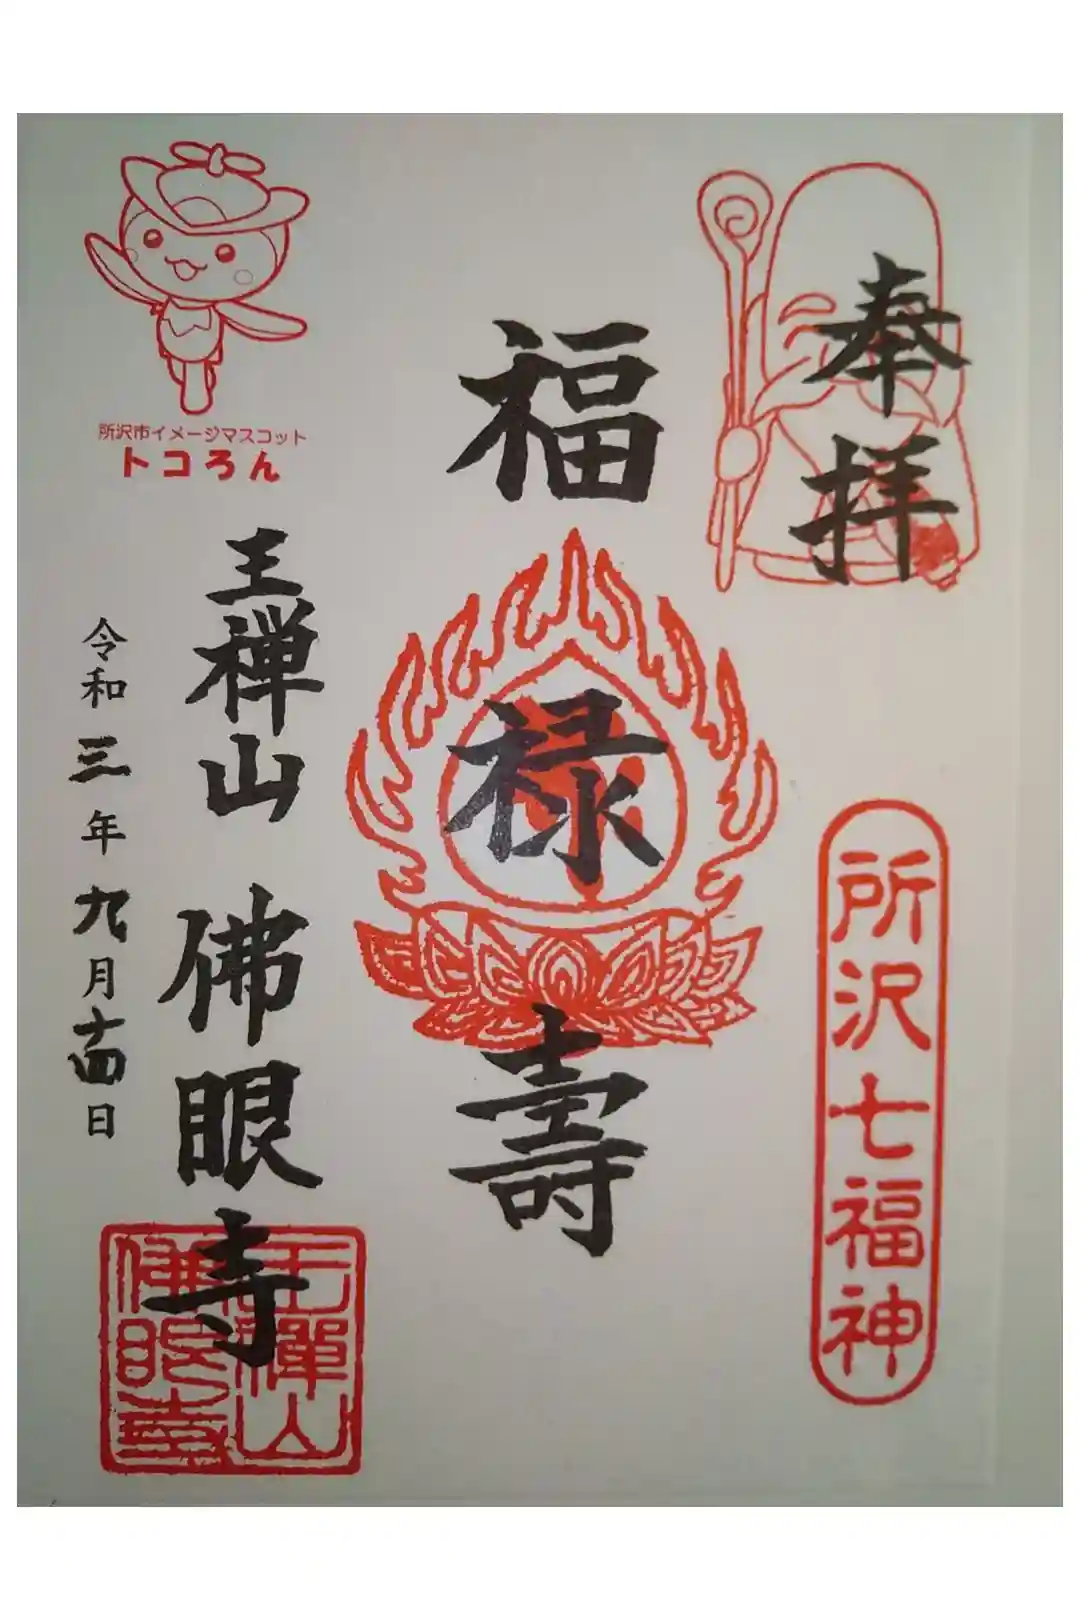 奉拝
所沢七福神
福禄壽
所沢市イメージマスコット
トコろん
王禅山 佛眼寺
王禪山
佛眼寺
令和三年九月十四日